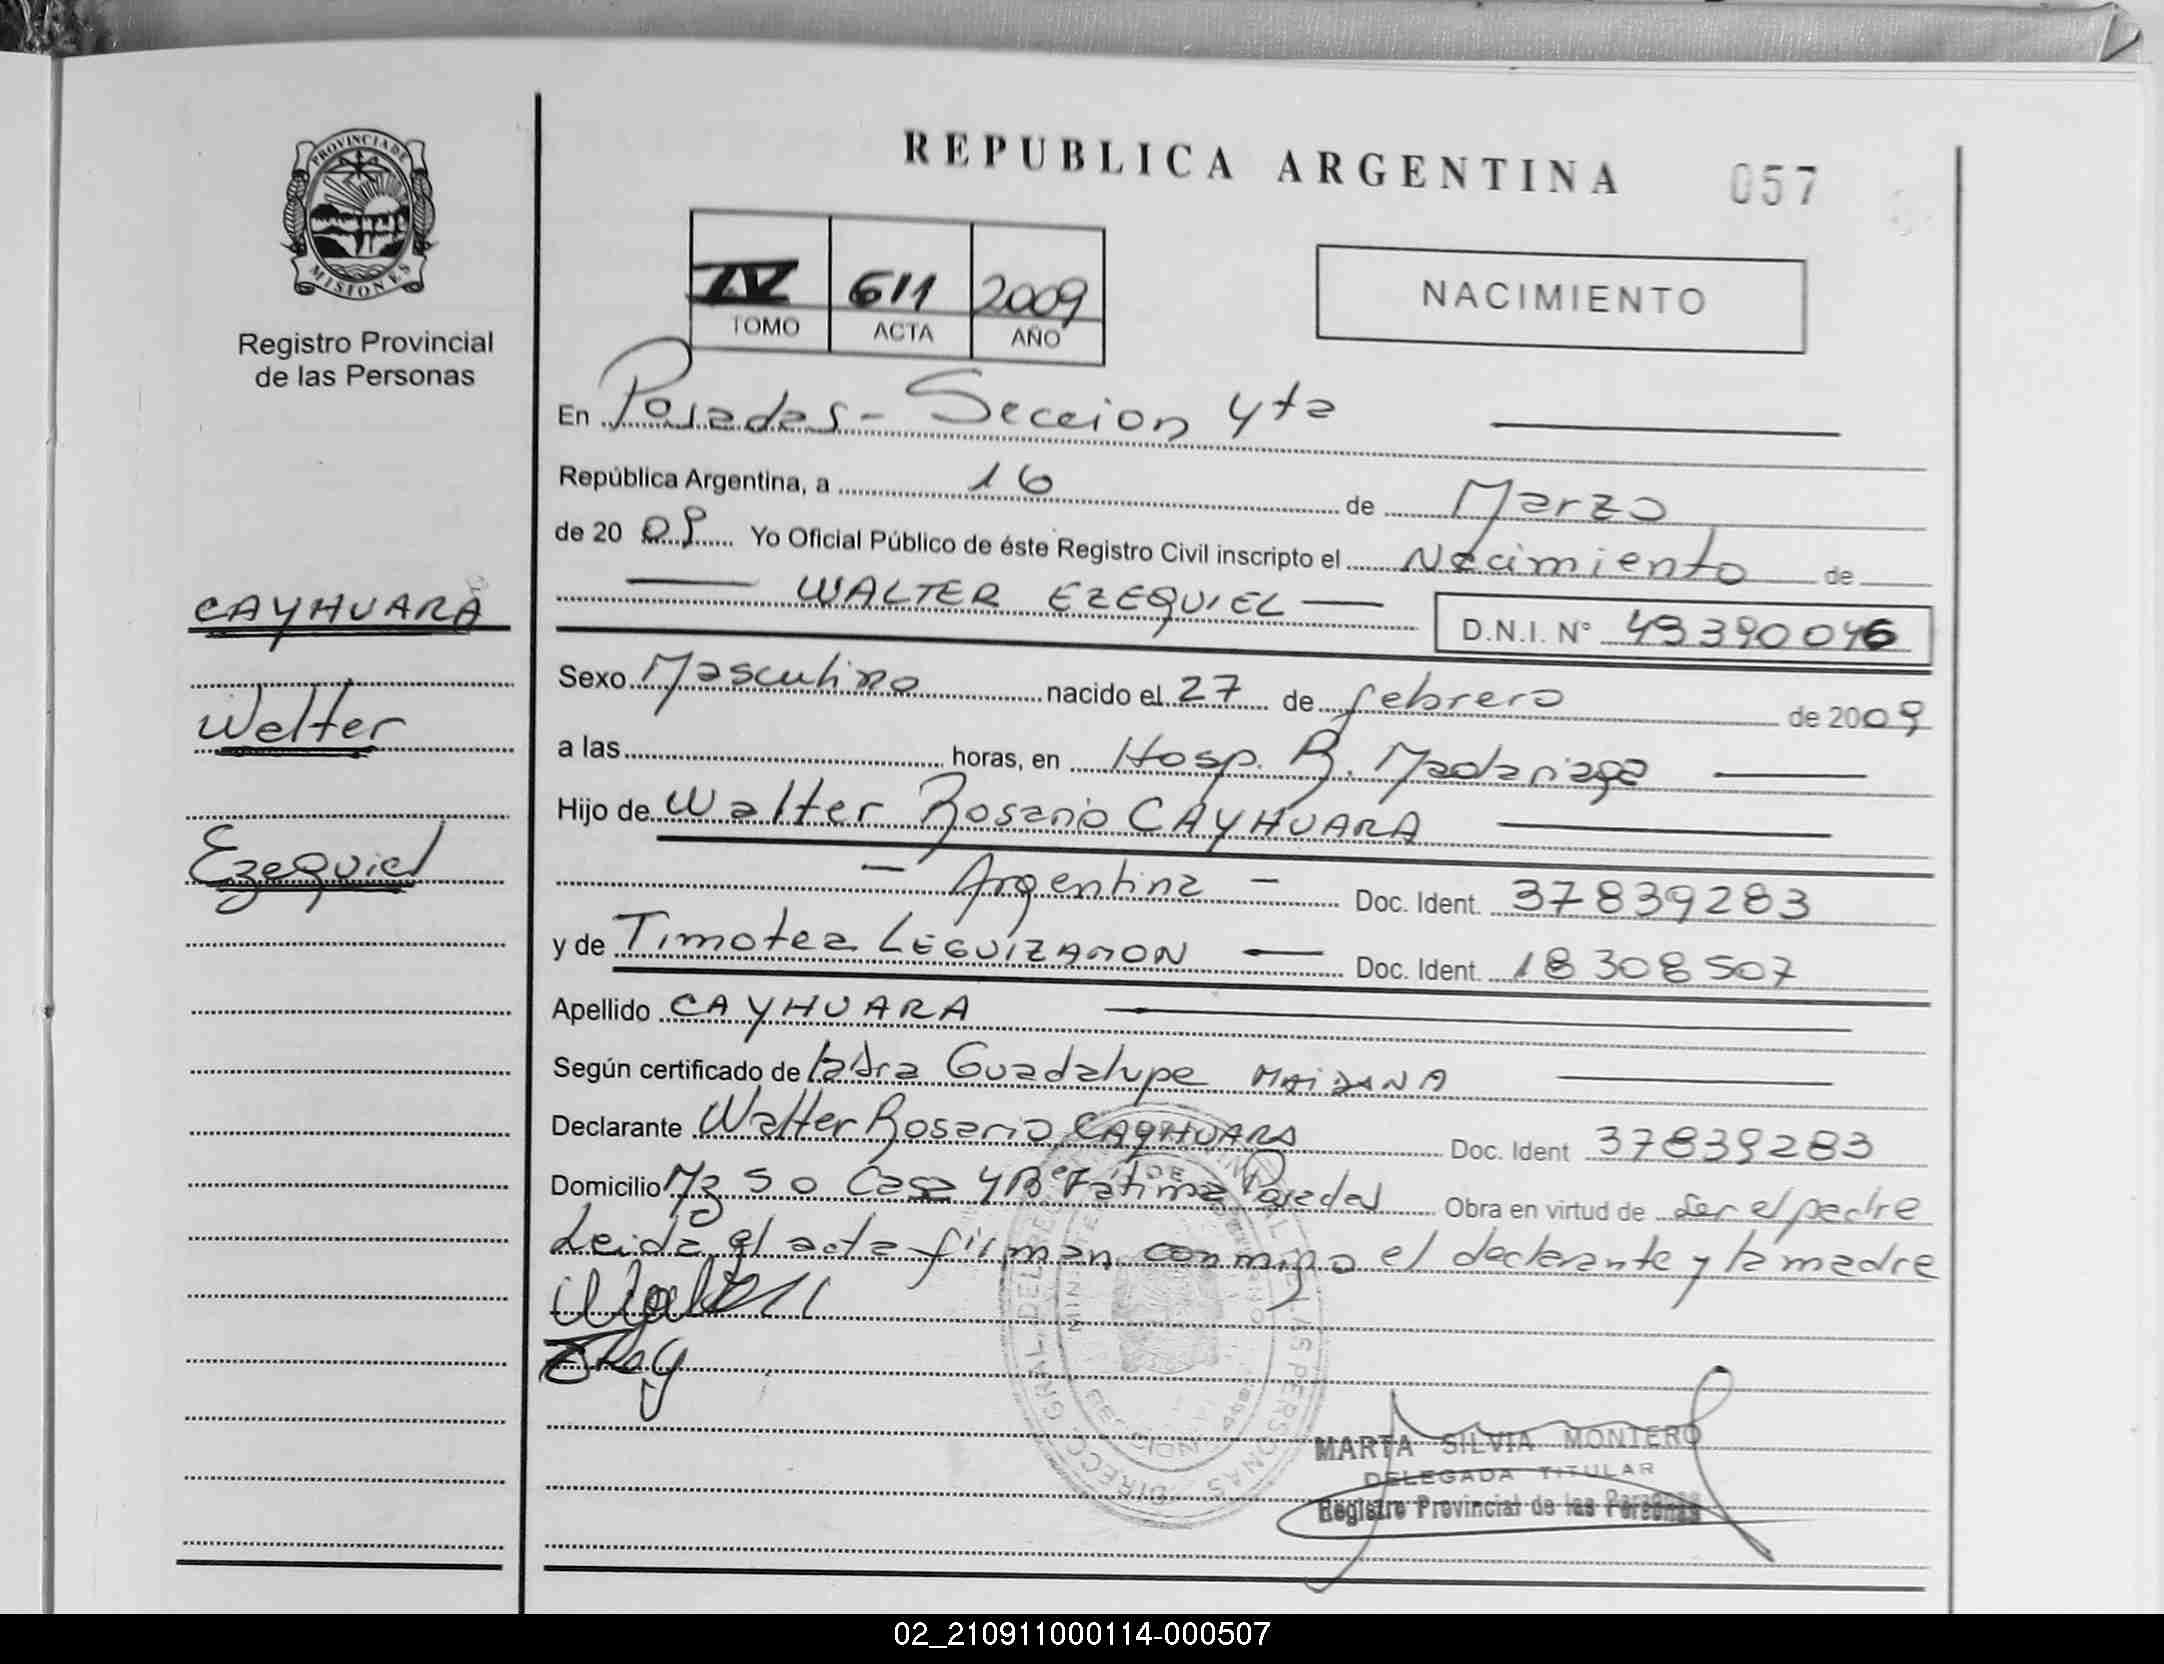 REPUBLICA ARGENTINA
057
PROVINCIA DE
MISIONES
Registro Provincial
de las Personas
IV 611 2009
TOMO ACTA AÑO
NACIMIENTO
En Posadas - Seccion 4ta
República Argentina, a 16 de Marzo
de 20 09 Yo Oficial Público de éste Registro Civil inscripto el Nacimiento de
WALTER EZEQUIEL D.N.I. N° 49390046
CAYHUARA
Walter
Ezequiel
Sexo Masculino nacido el 27 de febrero de 2009
a las horas, en Hosp. R. Madariaga
Hijo de Walter Rosario CAYHUARA
- Argentina - Doc. Ident. 37839283
y de Timotea LEGUIZAMON Doc. Ident. 18308507
Apellido CAYHUARA
Según certificado de la Dra Guadalupe MAIDANA
Declarante Walter Rosario CAYHUARA Doc. Ident 37839283
Domicilio Mz 50 Casa 4 Bº Fatima Posadas Obra en virtud de ser el padre
Leida el acta firman conmigo el declarante y la madre
MARTA SILVIA MONTERO
DELEGADA TITULAR
Registro Provincial de las Personas
02_210911000114-000507